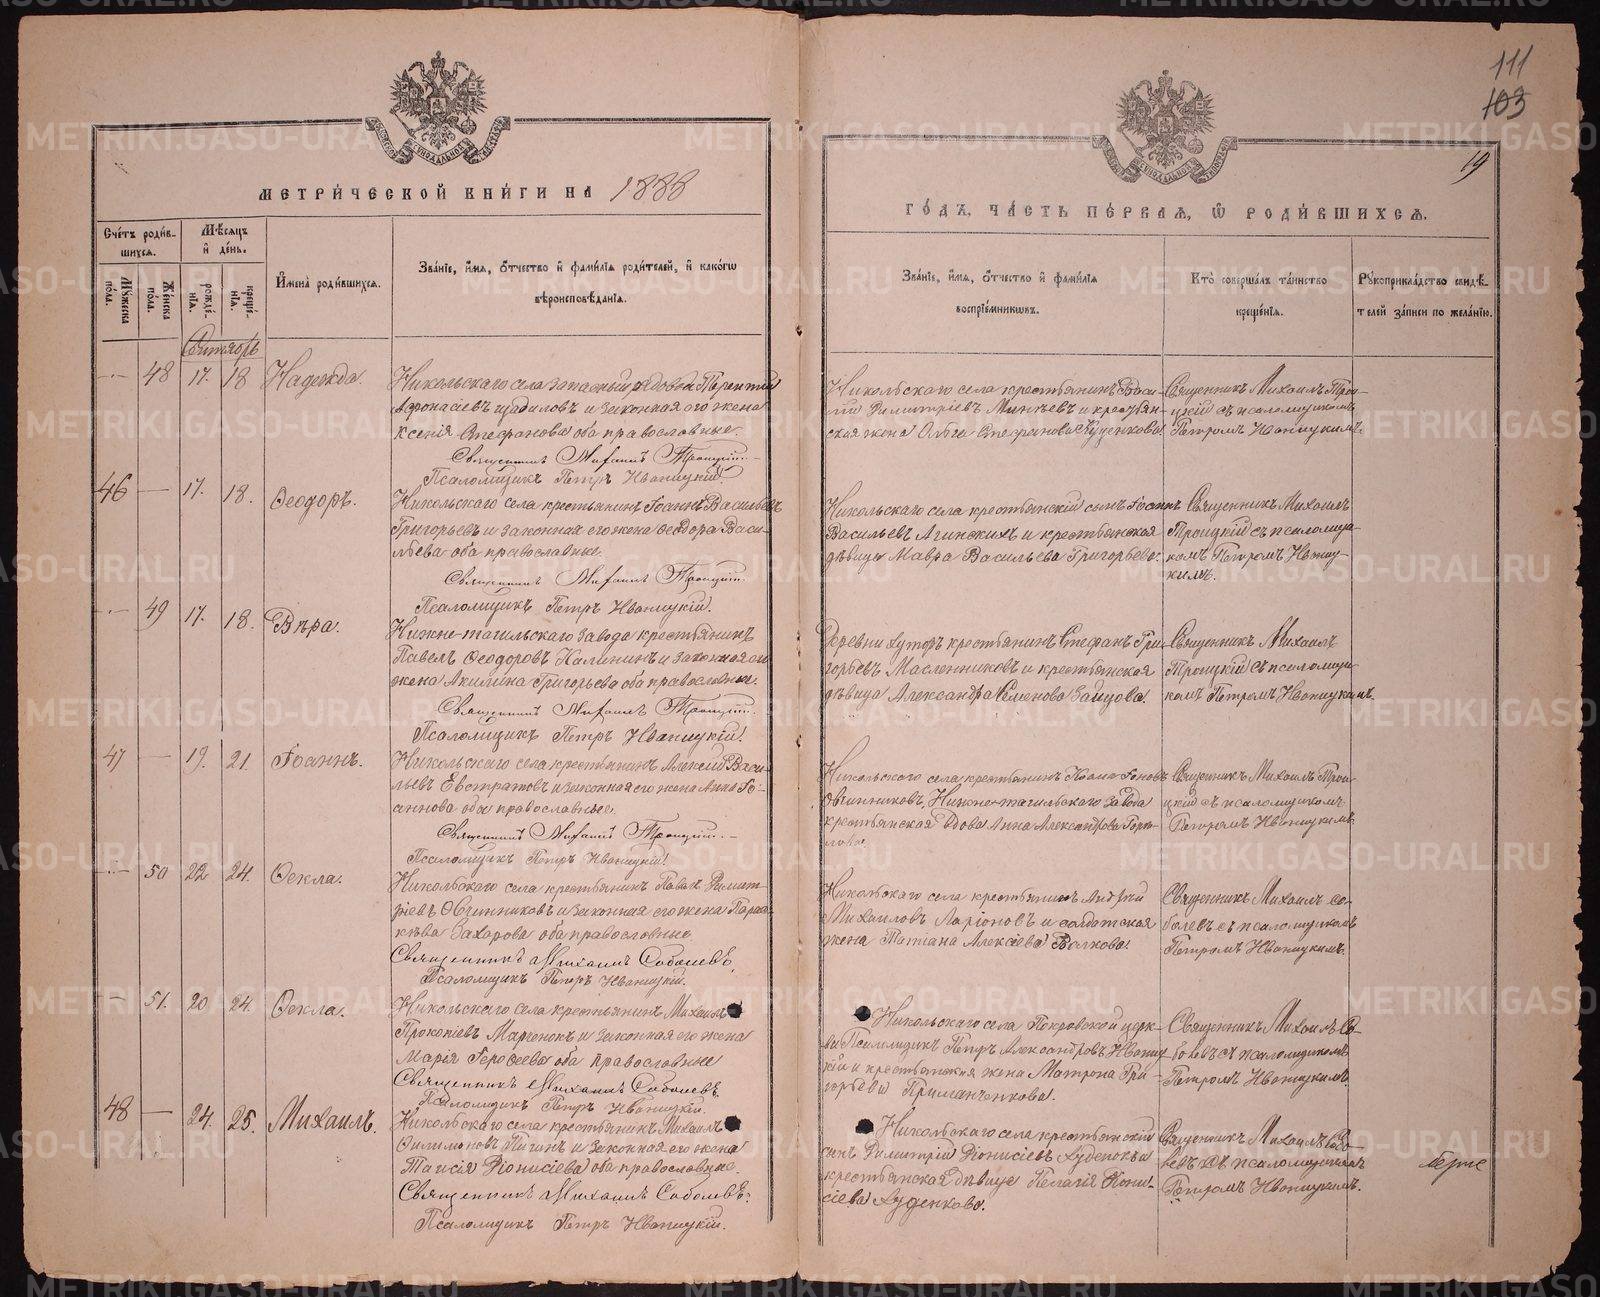 111
103
19
МЕТРИ́ЧЕСКОЙ КНИ́ГИ НА 1888
ГО́ДЪ, ЧА́СТЬ ПЕ́РВАЯ, Ѿ РОДИ́ВШИХСЯ.
Сче́тъ роди́в-
шихся.
Му́жеска пола.
Же́нска пола.
Мѣ́сяцъ
и҆ де́нь.
рожде́-
нїя.
креще́-
нїя.
И҆мена роди́вшихся.
Зва́нїе, и҆́мя, ѻ҆́тчество и҆ фами́лїя роди́телей, и҆ како́гѡ
вѣроисповѣ́данїя.
Зва́нїе, и҆́мя, ѻ҆́тчество и҆ фами́лїя
воспрїе́мникѡвъ.
Кто̀ соверша́лъ та́инство
креще́нїя.
Рꙋкоприкла́дство свидѣ́-
телей за́писи по жела́нїю.
Октябрь
48 17. 18 Надежда.
Никольскаго села запасный рядовой Терентий
Афонасіевъ и законная его жена
Ксенія Стефанова оба православные.
Священникъ Михаилъ Троицкій.
Псаломщикъ Петръ Иваницкій.
Никольскаго села крестьянинъ
Димитріевъ Минѣевъ и крестьян-
ская жена Ольга Стефанова
Священникъ Михаилъ Трои-
цкій съ псаломщикомъ
Петромъ Иваницкимъ.
46 — 17. 18. Ѳеодоръ.
Никольскаго села крестьянинъ Іоаннъ Васильевъ
Григорьевъ и законная его жена Ѳеодора Васи-
льева оба православные.
Священникъ Михаилъ Троицкій.
Псаломщикъ Петръ Иваницкій.
Никольскаго села крестьянскій сынъ Іоаннъ
Васильевъ Агинскихъ и крестьянская
дѣвица Мавра Васильева Григорьева.
Священникъ Михаилъ
Троицкій съ псаломщи-
комъ Петромъ Иваниц-
кимъ.
49 17. 18. Вѣра.
Нижне-тагильскаго завода крестьянинъ
Павелъ Ѳеодоровъ Калининъ и законная его
жена Акилина Григорьева оба православные.
Священникъ Михаилъ Троицкій.
Псаломщикъ Петръ Иваницкій.
Деревни Хуторъ крестьянинъ Стефанъ Гри-
горьевъ Масленниковъ и крестьянская
дѣвица Александра Семенова Зайцова.
Священникъ Михаилъ
Троицкій съ псаломщи-
комъ Петромъ Иваницкимъ.
47 — 19. 21. Іоаннъ.
Никольскаго села крестьянинъ Алексій Васи-
льевъ Евстратовъ и законная его жена Анна Іо-
аннова оба православные.
Священникъ Михаилъ Троицкій.
Псаломщикъ Петръ Иваницкій.
Никольскаго села крестьянинъ
Овчинниковъ, Нижне-тагильскаго завода
крестьянская вдова Анна Александрова
Священникъ Михаилъ Трои-
цкій съ псаломщикомъ
Петромъ Иваницкимъ.
50 22 24. Ѳекла.
Никольскаго села крестьянинъ Павелъ Димит-
ріевъ Овчинниковъ и законная его жена Параск-
кѣва Захарова оба православные.
Священникъ Михаилъ Соболевъ.
Псаломщикъ Петръ Иваницкій.
Никольскаго села крестьянинъ Андрей
Михаиловъ Ларіоновъ и солдатская
жена Татіана Алексіева Волкова.
Священникъ Михаилъ Со-
болевъ съ псаломщикомъ
Петромъ Иваницкимъ.
51. 20 24. Ѳекла.
Никольскаго села крестьянинъ Михаилъ
Прокопіевъ Марченокъ и законная его жена
Марія Герофеева оба православные
Священникъ Михаилъ Соболевъ.
Псаломщикъ Петръ Иваницкій.
Никольскаго села Покровской церк-
ви Псаломщикъ Петръ Александровъ Иваниц-
кій и крестьянская жена Матрона Гри-
горьева Приманченкова.
Священникъ Михаилъ Со-
болевъ съ псаломщикомъ
Петромъ Иваницкимъ.
48 — 24. 25. Михаилъ.
Никольскаго села крестьянинъ Михаилъ
Филимоновъ и законная его жена
Таисія Діонисіева оба православные.
Священникъ Михаилъ Соболевъ.
Псаломщикъ Петръ Иваницкій.
Никольскаго села крестьянскій
сынъ Димитрій Діонисіевъ Худенокъ и
крестьянская дѣвица Пелагія Діони-
сіева Худенкова.
Священникъ Михаилъ Собо-
левъ съ псаломщикомъ
Петромъ Иваницкимъ.
METRIKI.GASO-URAL.RU